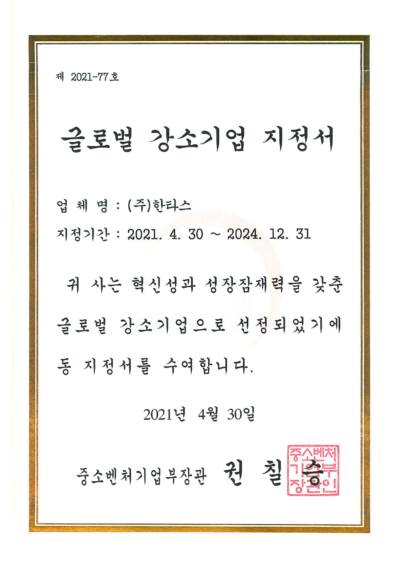 제 2021-77호
글로벌 강소기업 지정서
업 체 명 : (주)한타스
지정기간 : 2021. 4. 30 ~ 2024. 12. 31
귀 사는 혁신성과 성장잠재력을 갖춘
글로벌 강소기업으로 선정되었기에
동 지정서를 수여합니다.
2021년 4월 30일
중소벤처기업부장관 권 칠 승
중소벤처
기업부
장관인